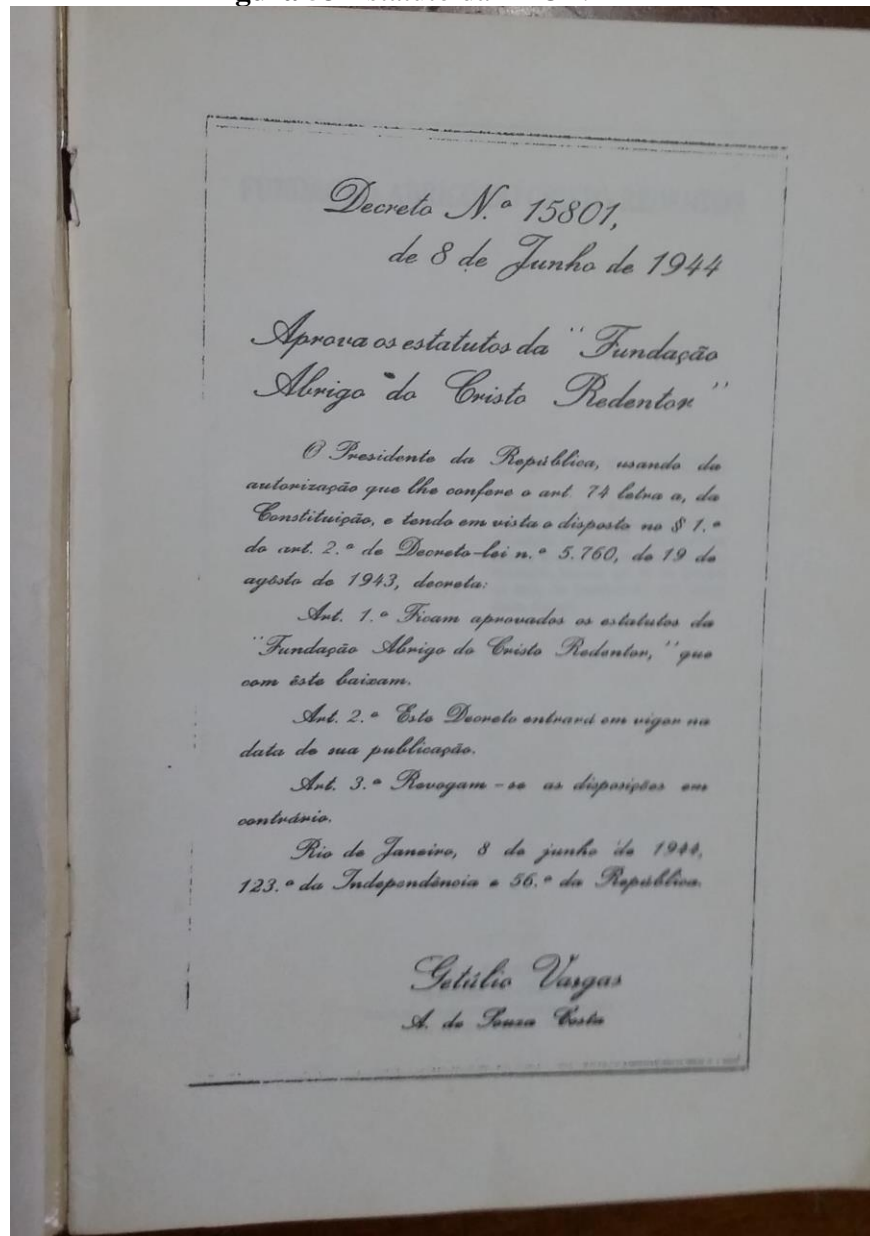 Decreto N.º 15801,
de 8 de Junho de 1944
Aprova os estatutos da "Fundação
Abrigo do Cristo Redentor"
O Presidente da República, usando da
autorização que lhe confere o art. 74 letra a, da
Constituição, e tendo em vista o disposto no § 1.º
do art. 2.º de Decreto-lei n.º 5.760, de 19 de
agôsto de 1943, decreta:
Art. 1.º Ficam aprovados os estatutos da
"Fundação Abrigo do Cristo Redentor," que
com êste baixam.
Art. 2.º Este Decreto entrará em vigor na
data de sua publicação.
Art. 3.º Revogam-se as disposições em
contrário.
Rio de Janeiro, 8 de junho de 1944,
123.º da Independência e 56.º da República.
Getúlio Vargas
A. de Souza Costa